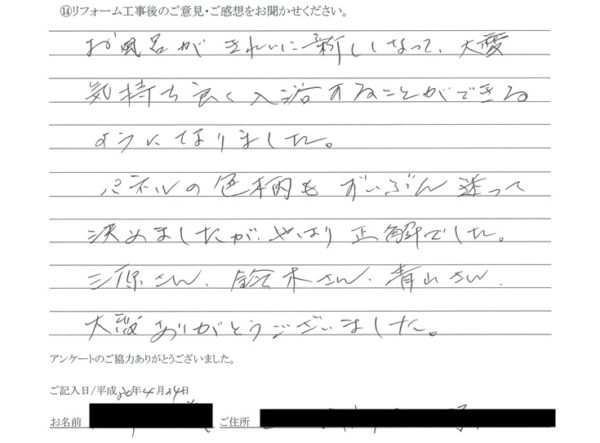 ⑭リフォーム工事後のご意見・ご感想をお聞かせください。
お風呂がきれいに新しくなって、大変
気持ち良く入浴することができる
ようになりました。
パネルの色柄もずいぶん迷って
決めましたが、やはり正解でした。
三原さん、鈴木さん、青山さん、
大変ありがとうございました。
アンケートのご協力ありがとうございました。
ご記入日/平成26年4月24日
お名前 ご住所